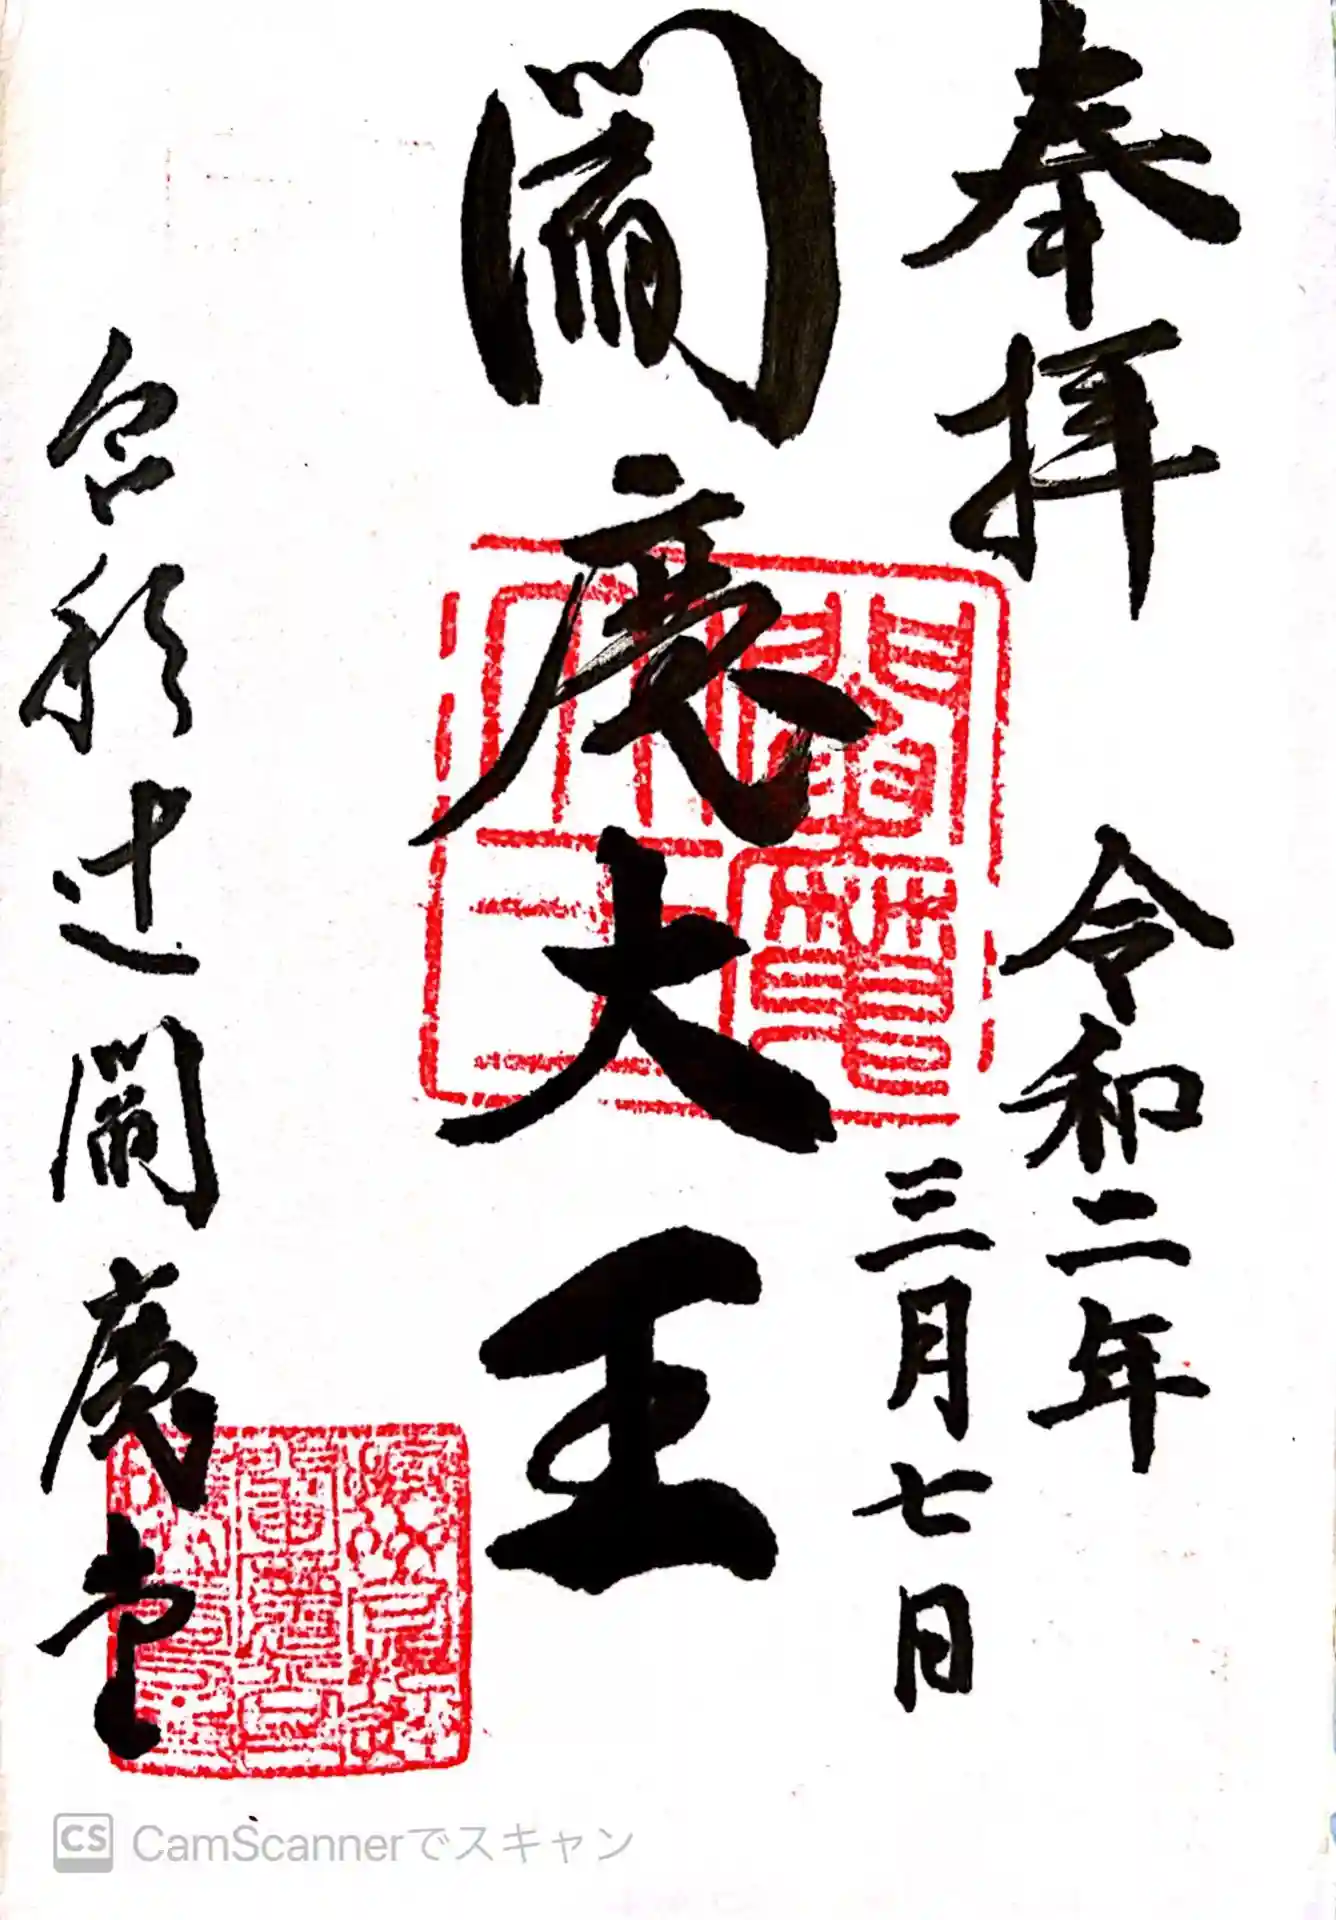 奉拝
令和二年
三月七日
閻魔大王
合羽辻閻魔堂
閻魔大王
CS CamScannerでスキャン